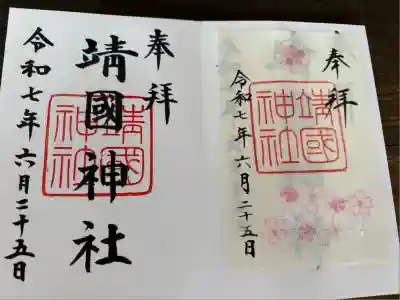 奉拝
靖國神社
靖國
神社
令和七年六月二十五日
奉拝
靖國
神社
令和七年六月二十五日